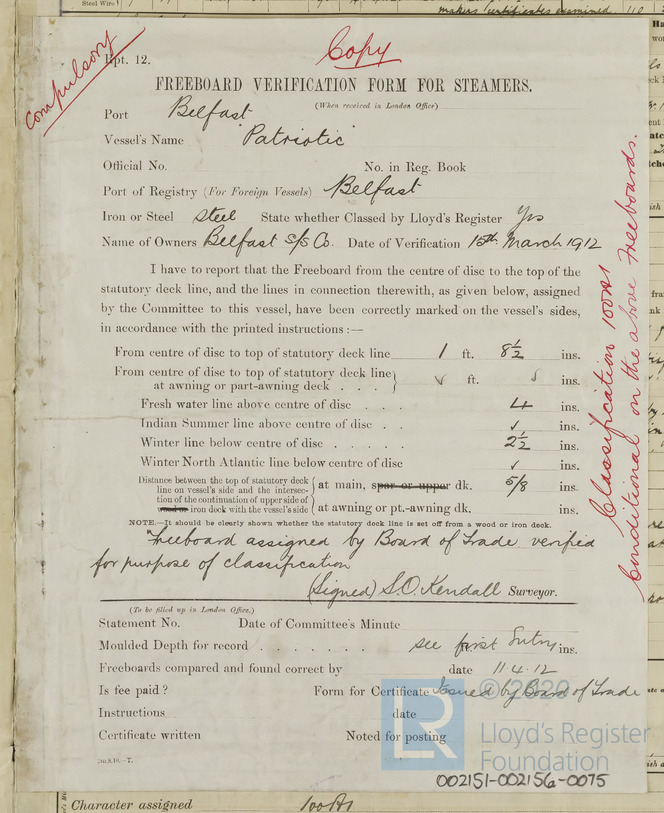 Steel Wire
makers certificates examined 110
compulsory
Rpt. 12.
Copy
FREEBOARD VERIFICATION FORM FOR STEAMERS.
(When received in London Office)
Port Belfast
Vessel's Name "Patriotic"
Official No. No. in Reg. Book
Port of Registry (For Foreign Vessels) Belfast
Iron or Steel Steel State whether Classed by Lloyd's Register Yes
Name of Owners Belfast S/S Co. Date of Verification 15th March 1912
I have to report that the Freeboard from the centre of disc to the top of the
statutory deck line, and the lines in connection therewith, as given below, assigned
by the Committee to this vessel, have been correctly marked on the vessel's sides,
in accordance with the printed instructions :—
From centre of disc to top of statutory deck line 1 ft. 8½ ins.
From centre of disc to top of statutory deck line
at awning or part-awning deck . . . ✓ ft. ✓ ins.
Fresh water line above centre of disc . . . 4 ins.
Indian Summer line above centre of disc . . ✓ ins.
Winter line below centre of disc . . . . . 2½ ins.
Winter North Atlantic line below centre of disc ✓ ins.
Distance between the top of statutory deck
line on vessel's side and the intersec-
tion of the continuation of upper side of
wood or iron deck with the vessel's side
at main, spar or upper dk. 5/8 ins.
at awning or pt.-awning dk. ins.
NOTE.—It should be clearly shown whether the statutory deck line is set off from a wood or iron deck.
Freeboard assigned by Board of Trade verified
for purpose of classification
(Signed) S.O. Kendall Surveyor.
(To be filled up in London Office.)
Statement No. Date of Committee's Minute
Moulded Depth for record . . . . . . . see first Entry ins.
Freeboards compared and found correct by date 11.4.12
Is fee paid? Form for Certificate Issued by Board of Trade
Instructions date
Certificate written Noted for posting
2m,8,10.–T.
Classification 100A1
Conditional on the above Freeboards.
LR
© 2020
Lloyd's Register
Foundation
002151-002156-0075
Character assigned 100A1